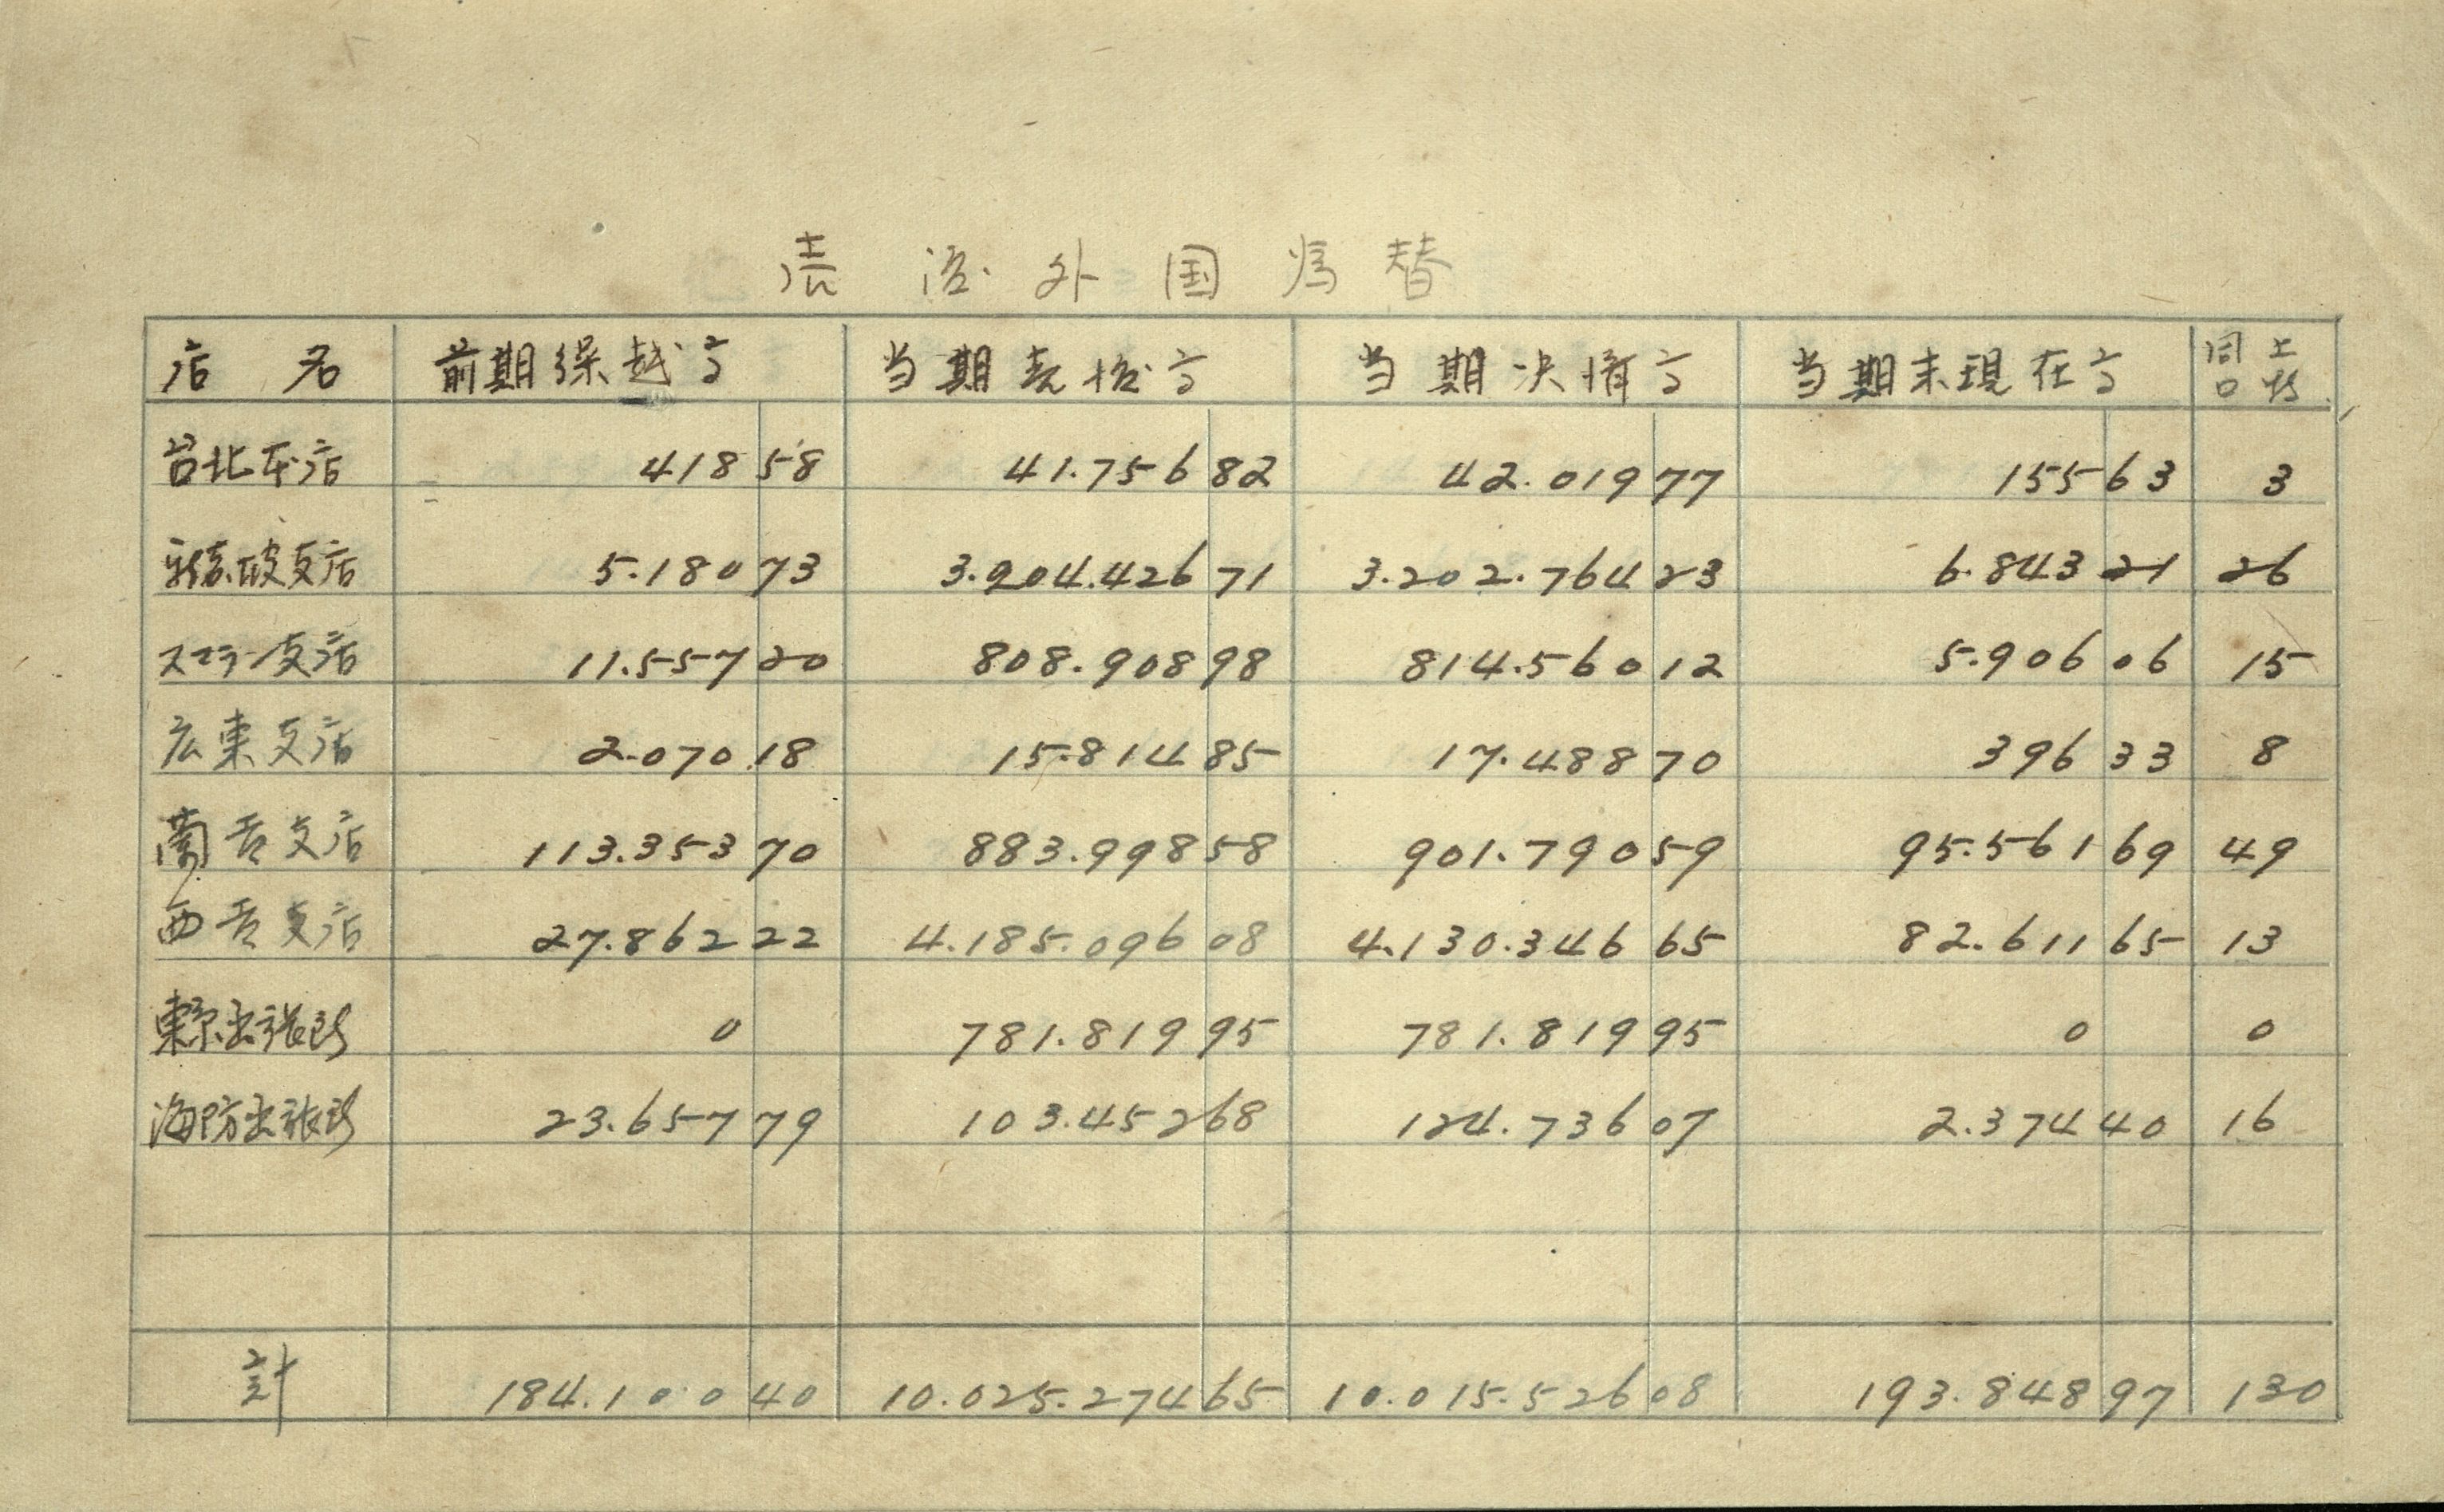 売渡外国為替
店名 前期繰越高 当期売渡高 当期決済高 当期末現在高 同上口数
台北本店 418 58 41.756 82 42.019 77 155 63 3
新嘉坡支店 5.180 73 3.204.426 71 3.202.764 23 6.843 21 26
スマラン支店 11.557 20 808.908 98 814.560 12 5.906 06 15
広東支店 2.070 18 15.814 85 17.488 70 396 33 8
蘭貢支店 113.353 70 883.998 58 901.790 59 95.561 69 49
西貢支店 27.862 22 4.185.096 08 4.130.346 65 82.611 65 13
東京出張所 0 781.819 95 781.819 95 0 0
海防出張所 23.657 79 103.452 68 124.736 07 2.374 40 16
計 184.100 40 10.025.274 65 10.015.526 08 193.848 97 130